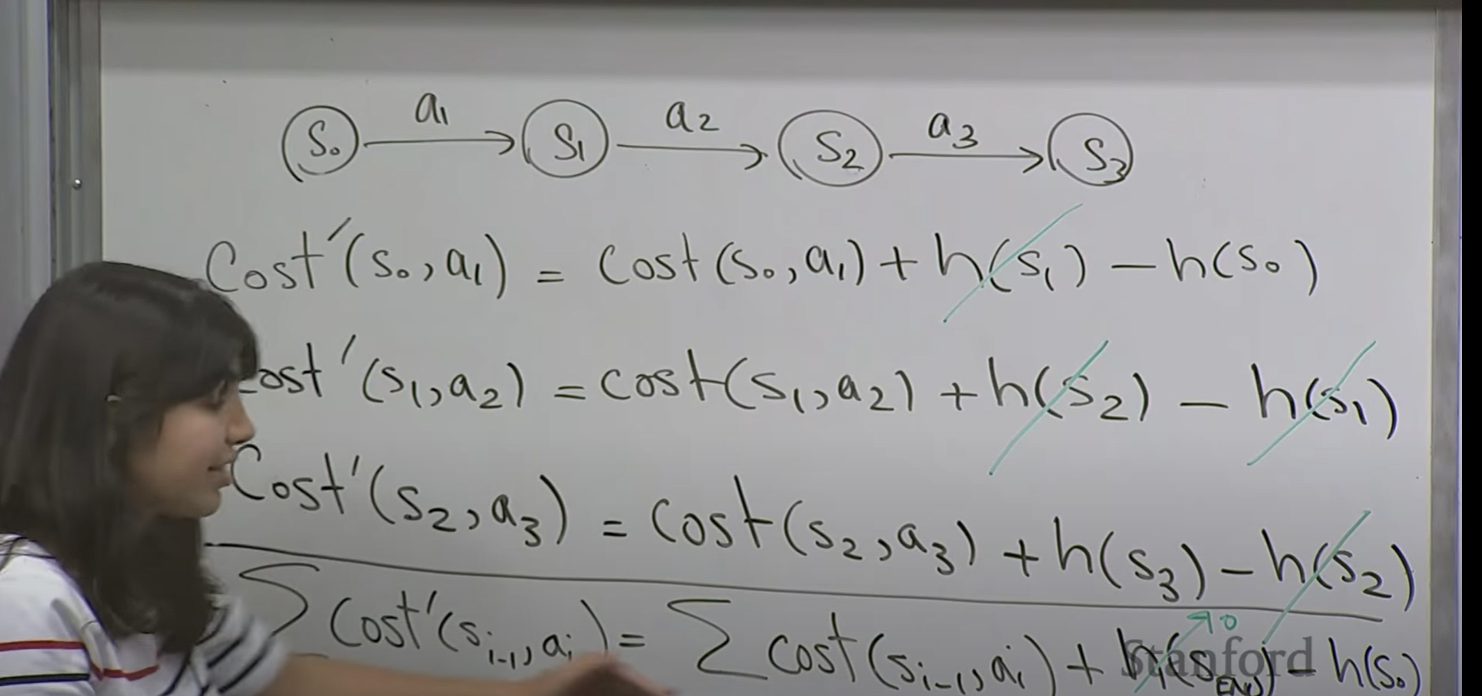 S₀ a₁ S₁ a₂ S₂ a₃ S₃
Cost'(s₀, a₁) = Cost(s₀, a₁) + h(s₁) − h(s₀)
Cost'(s₁, a₂) = cost(s₁, a₂) + h(s₂) − h(s₁)
Cost'(s₂, a₃) = Cost(s₂, a₃) + h(s₃) − h(s₂)
→0
∑ Cost'(sᵢ₋₁, aᵢ) = ∑ cost(sᵢ₋₁, aᵢ) + h(s_END) − h(s₀)
Stanford